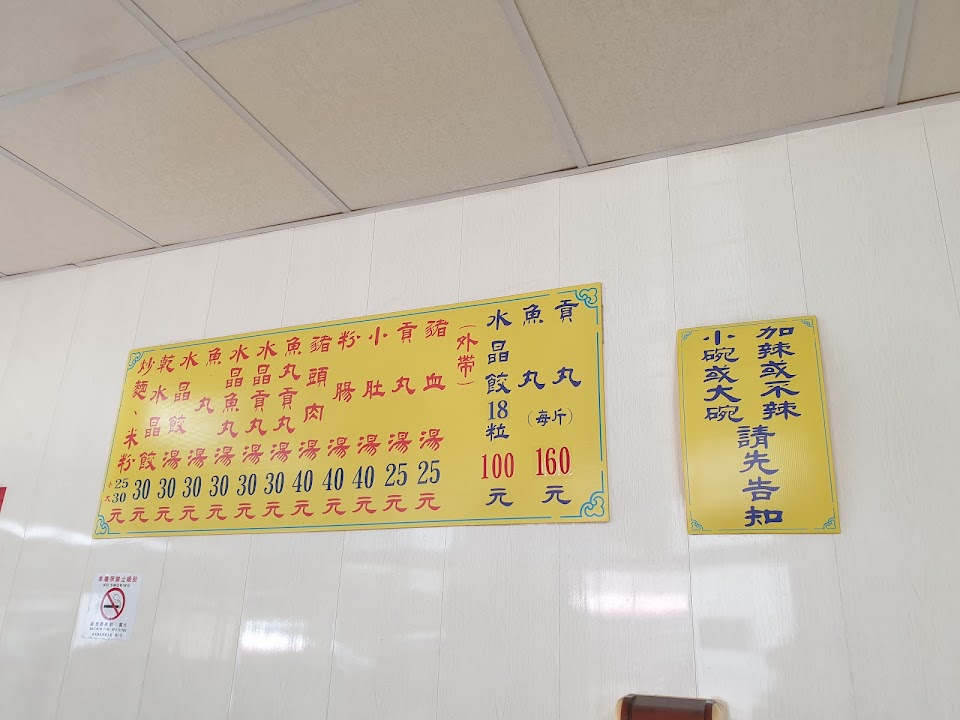 炒麵、米粉 小25 大30 元
乾水晶餃 30元
水晶餃湯 30元
魚丸湯 30元
水晶魚丸湯 30元
水晶貢丸湯 30元
魚丸貢丸湯 30元
豬頭肉湯 40元
粉腸湯 40元
小肚湯 40元
貢丸湯 25元
豬血湯 25元
(外帶)
水晶餃18粒 100元
魚丸
貢丸
(每斤) 160元
加辣或不辣
小碗或大碗
請先告知
本場所禁止吸菸
NO SMOKING